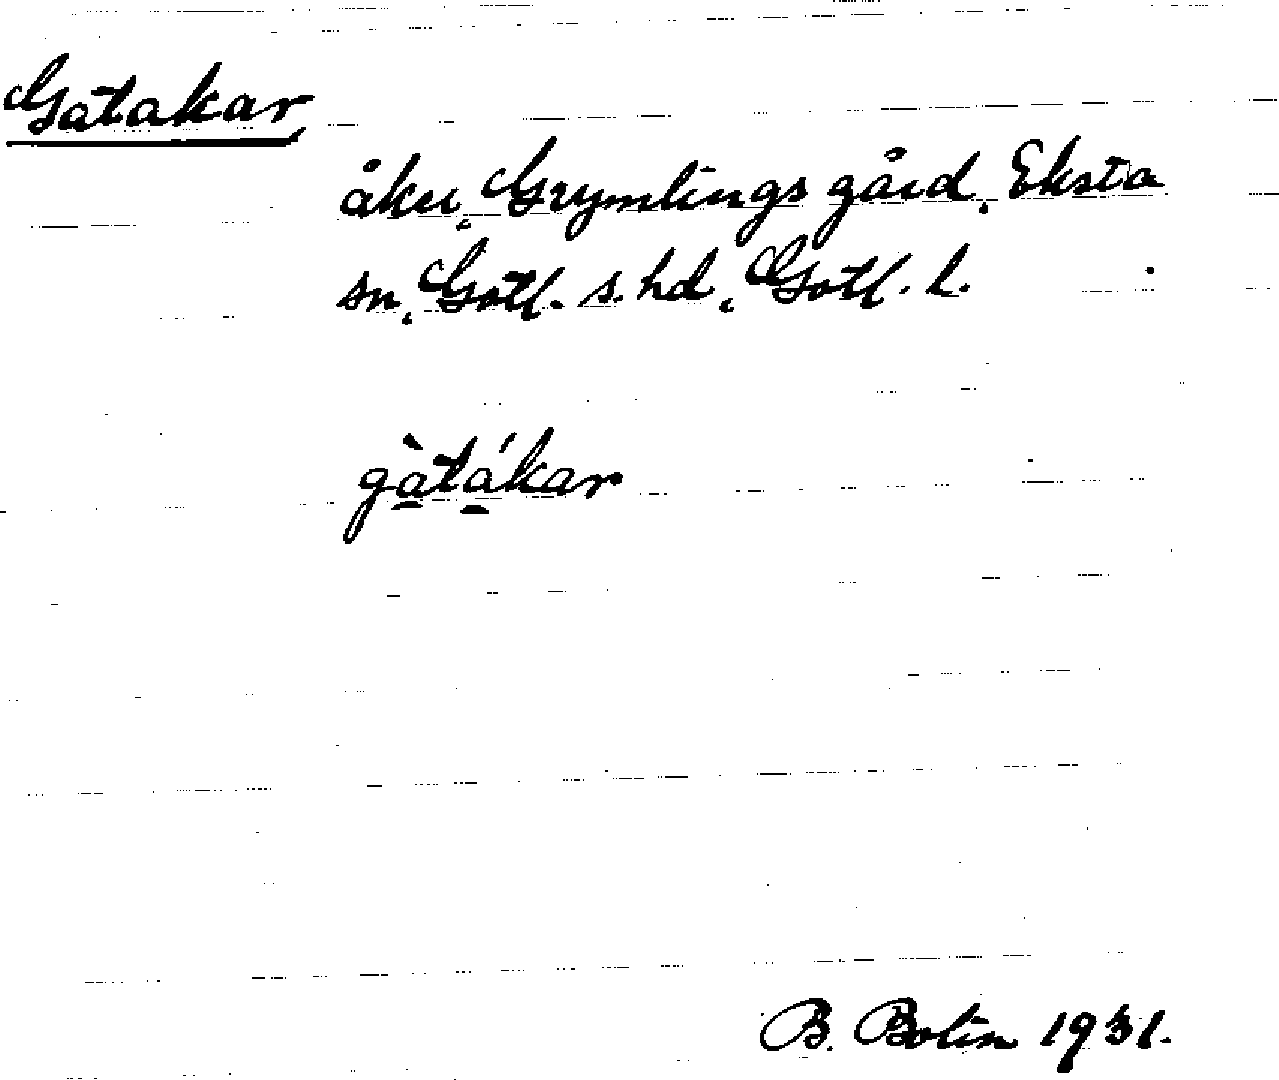 Gatakar
åker, Grymlings gård, Eksta
sn, Gotl. s. hd, Gotl. l.
gàtákar
B. Bolin 1931.